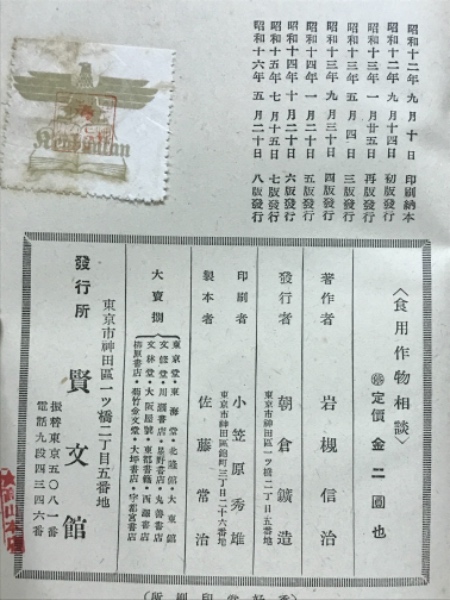 昭和十二年九月十日 印刷納本
昭和十二年九月十四日 初版發行
昭和十三年一月廿五日 再版發行
昭和十三年五月四日 三版發行
昭和十三年九月三十日 四版發行
昭和十四年一月二十日 五版發行
昭和十四年十月二十日 六版發行
昭和十五年七月十五日 七版發行
昭和十六年五月二十日 八版發行
〈食用作物相談〉
定價金二圓也
著作者 岩槻信治
發行者 朝倉鑛造
東京市神田區一ツ橋二丁目五番地
印刷者 小笠原秀雄
東京市神田區錦町三丁目二十六番地
製本者 佐藤常治
大賣捌
東京堂・東海堂・北隆館・大東館
文修堂・川瀨書店・星野書店・丸善書店
文林堂・大阪屋號・東都書籍・西瀨書店
柳原書店・菊竹金文堂・大坪書店・宇都宮書店
東京市神田區一ツ橋二丁目五番地
發行所 賢文館
振替東京五〇八一番
電話九段四三四六番
Kenbunkan